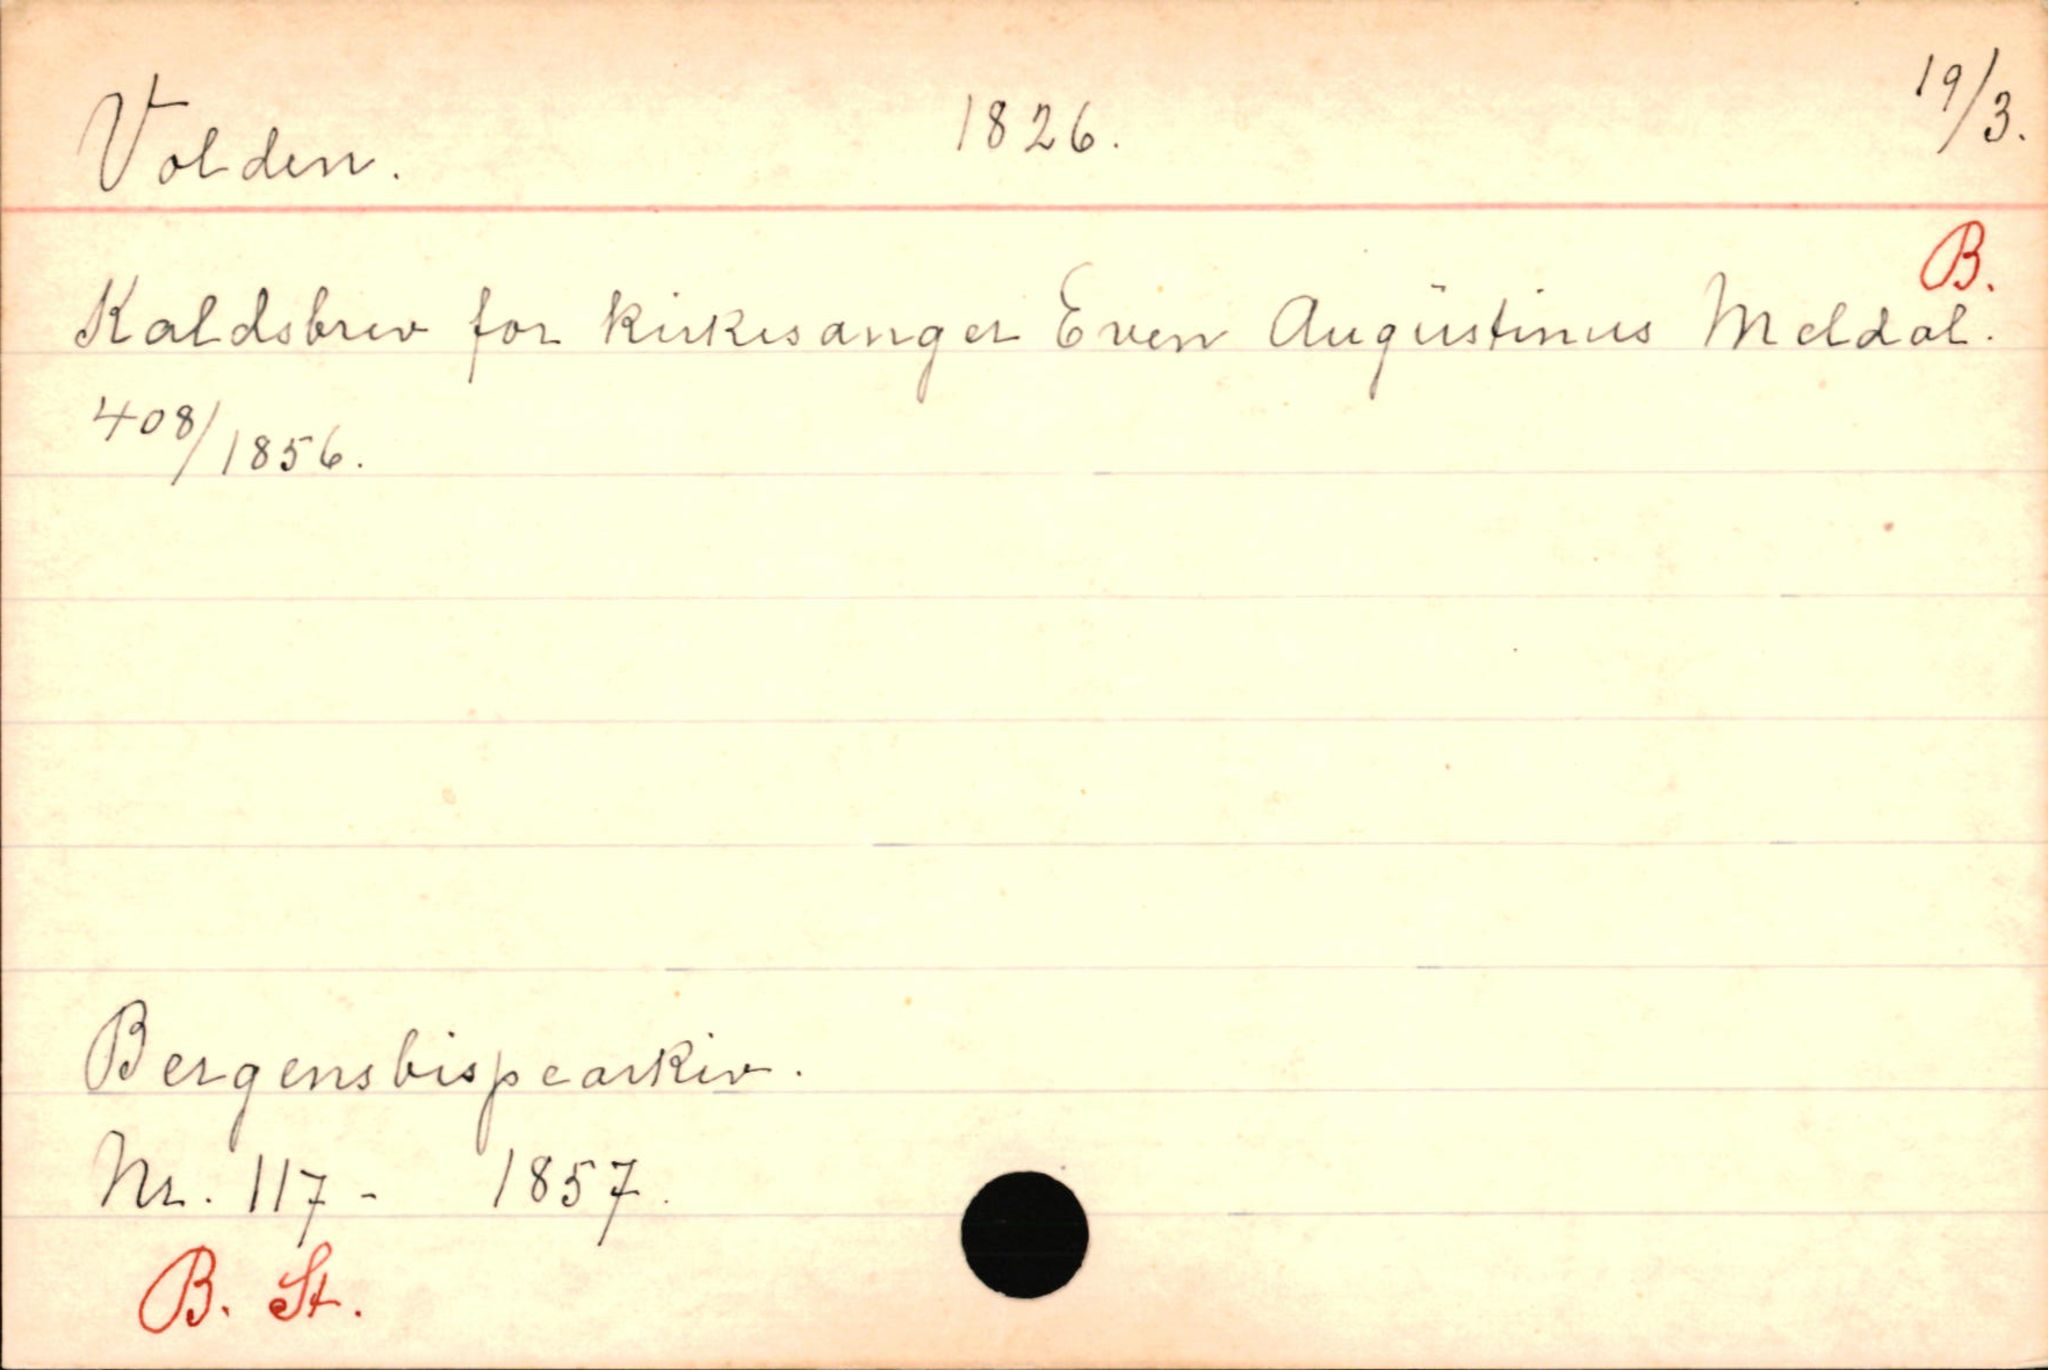 Volden. 1826. 19/3.
B.
Kaldsbrev for kirkesanger Even Augüstinus Meldal.
408/1856.
Bergensbispearkiv.
Nr. 117 - 1857.
B. St.